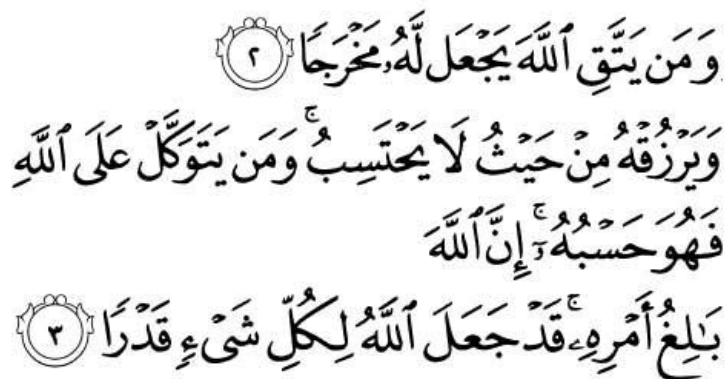 وَمَن يَتَّقِ ٱللَّهَ يَجْعَل لَّهُۥ مَخْرَجًا ٢
وَيَرْزُقْهُ مِنْ حَيْثُ لَا يَحْتَسِبُ ۚ وَمَن يَتَوَكَّلْ عَلَى ٱللَّهِ
فَهُوَ حَسْبُهُۥٓ ۚ إِنَّ ٱللَّهَ
بَـٰلِغُ أَمْرِهِۦ ۚ قَدْ جَعَلَ ٱللَّهُ لِكُلِّ شَىْءٍ قَدْرًا ٣